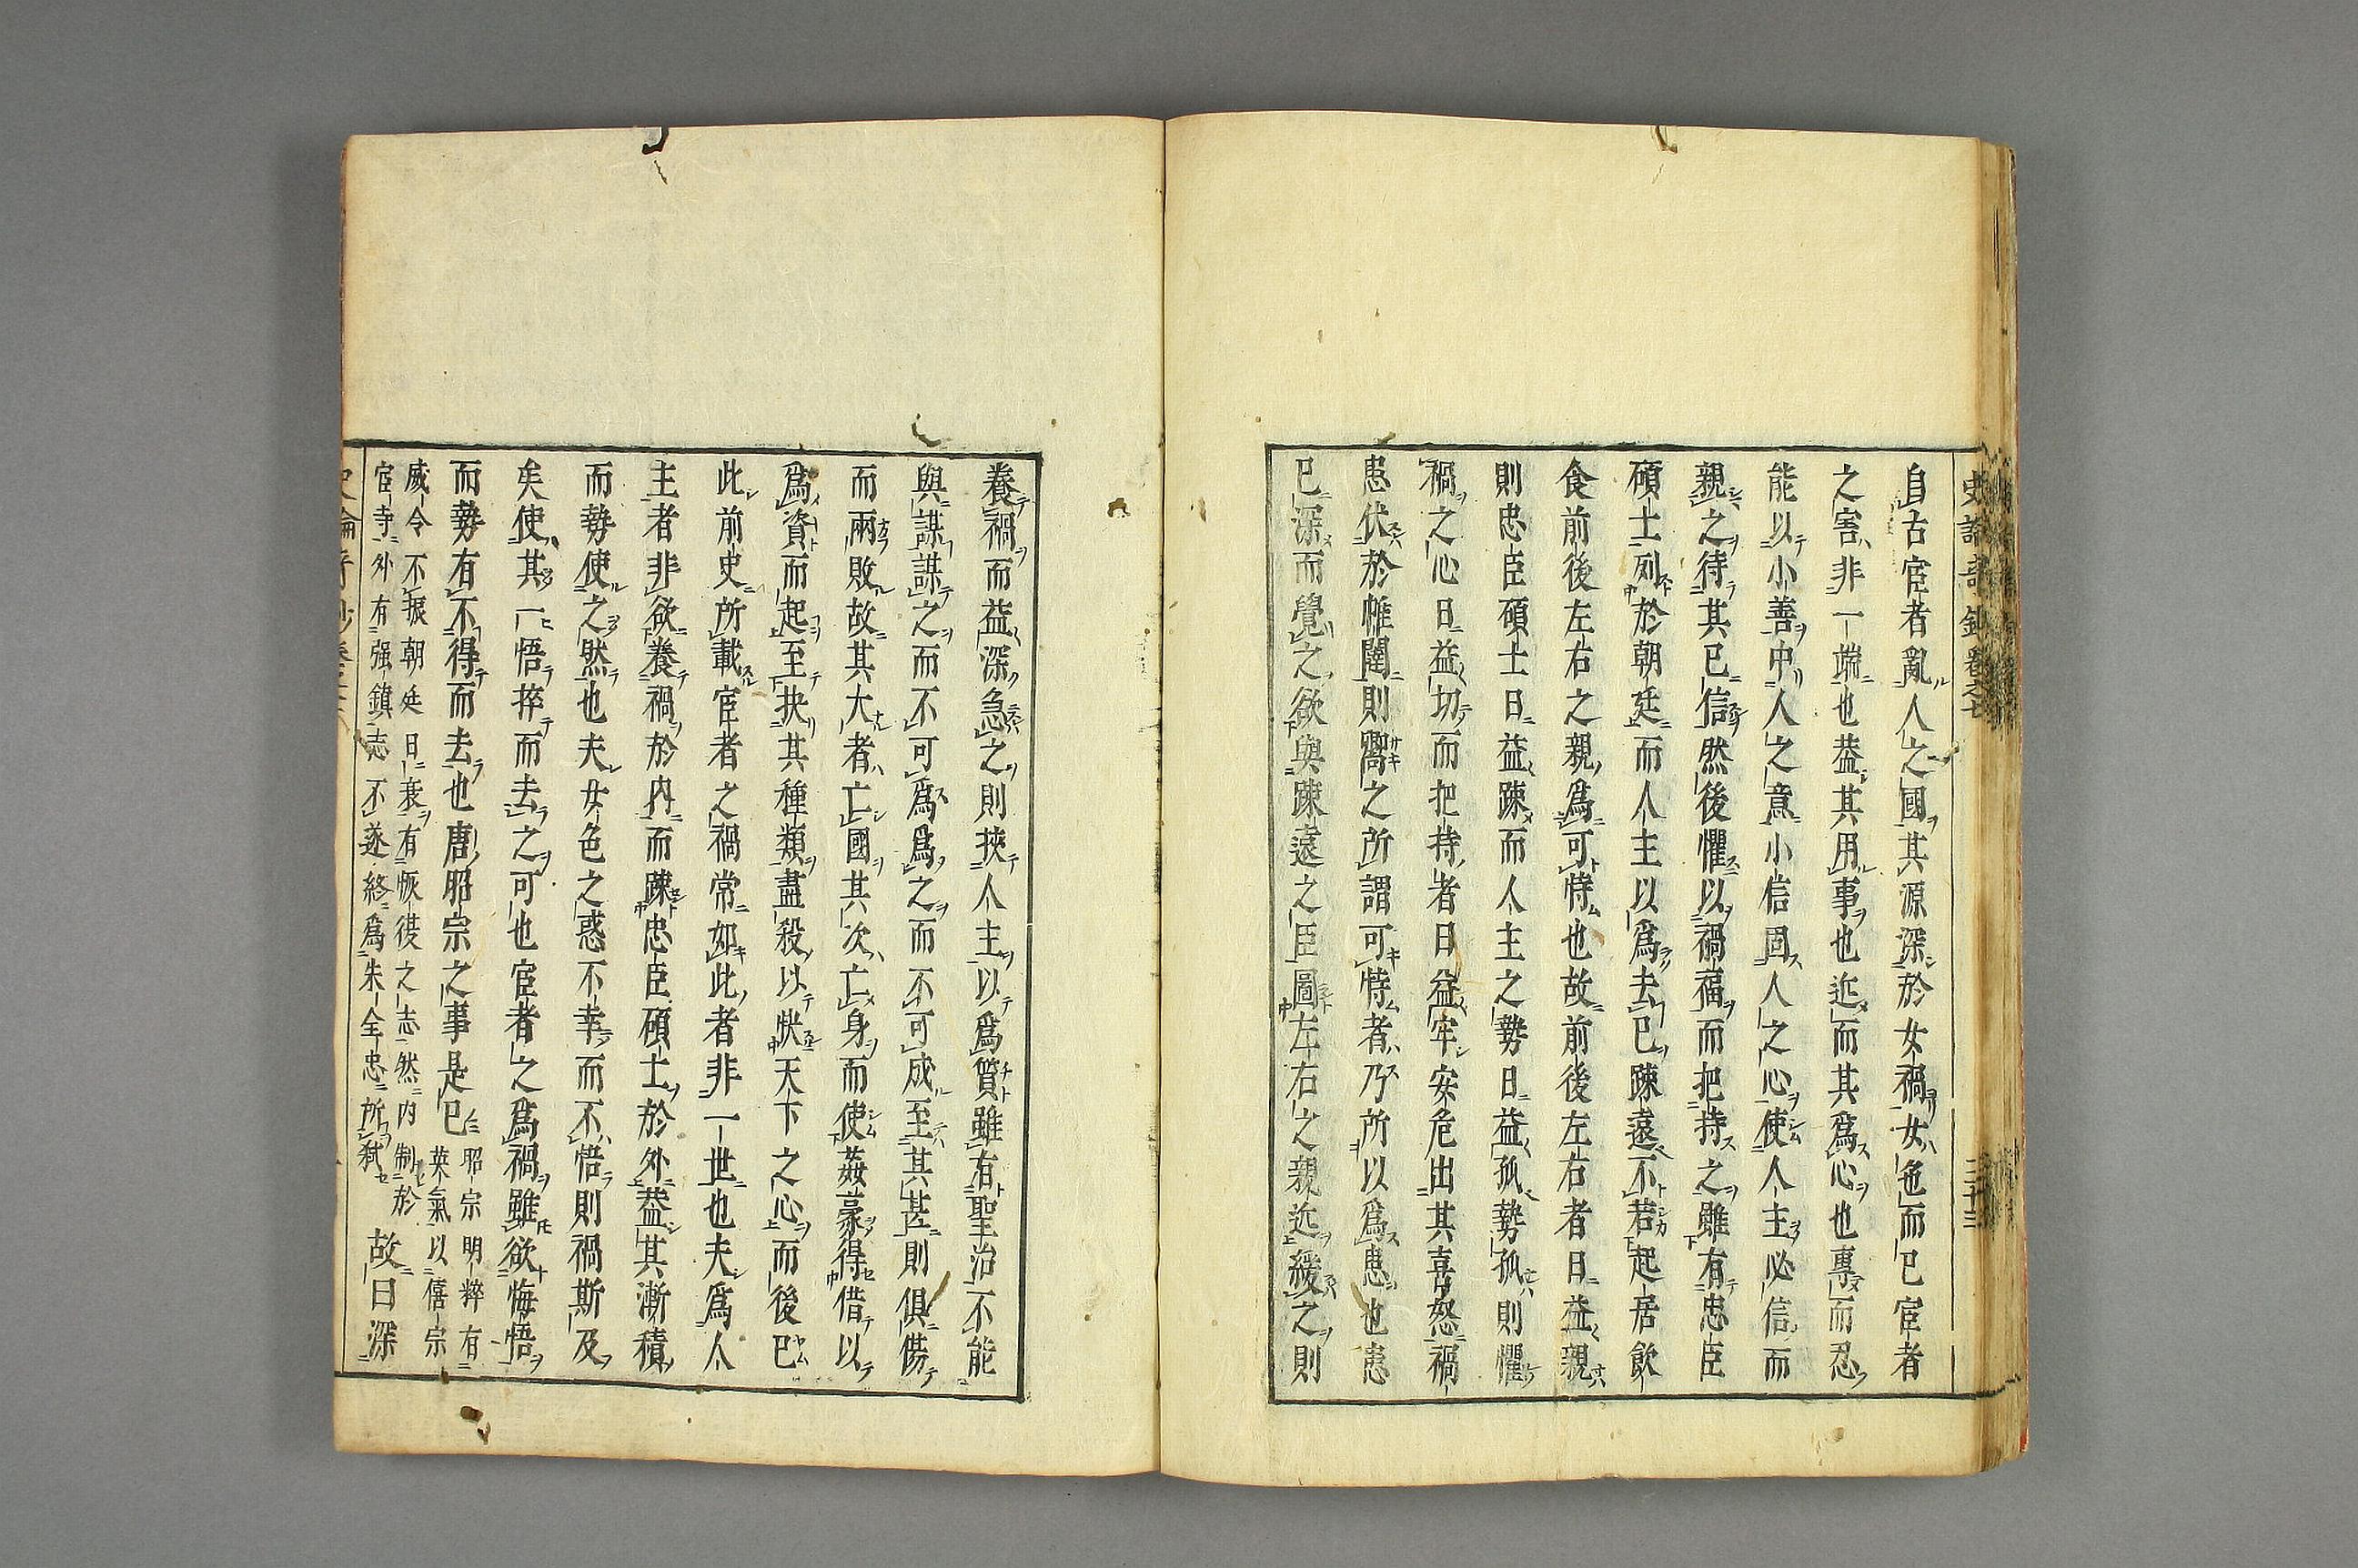 自古宦者亂人之國其源深於女禍女色而已宦者
之害非一端也葢其用事也近而其爲心也專而忍
能以小善中人之意小信固人之心使人主必信而
親之待其已信然後懼以禍福而把持之雖有忠臣
碩士列於朝廷而人主以爲去已踈遠不若起居飮
食前後左右之親爲可恃也故前後左右者日益親
則忠臣碩士日益踈而人主之勢日益孤勢孤則懼
禍之心日益切而把持者日益牢安危出其喜怒禍
患伏於帷闥則嚮之所謂可恃者乃所以爲患也患
已深而覺之欲與踈遠之臣圖左右之親近緩之則
養禍而益深急之則挾人主以爲質雖有聖治不能
與謀謀之而不可爲爲之而不可成至其甚則俱傷
而兩敗故其大者亡國其次亡身而使姦豪得借以
爲資而起至抉其種類盡殺以快天下之心而後已
此前史所載宦者之禍常如此者非一世也夫爲人
主者非欲養禍於内而踈忠臣碩士於外葢其漸積
而勢使之然也夫女色之惑不幸而不悟則禍斯及
矣使其一悟捽而去之可也宦者之爲禍雖欲悔悟
而勢有不得而去也唐昭宗之事是已
昭宗明粹有
英氣以僖宗
威令不振朝廷日衰有恢復之志然内制於
宦寺外有强鎮志不遂終爲朱全忠所弑
故曰深